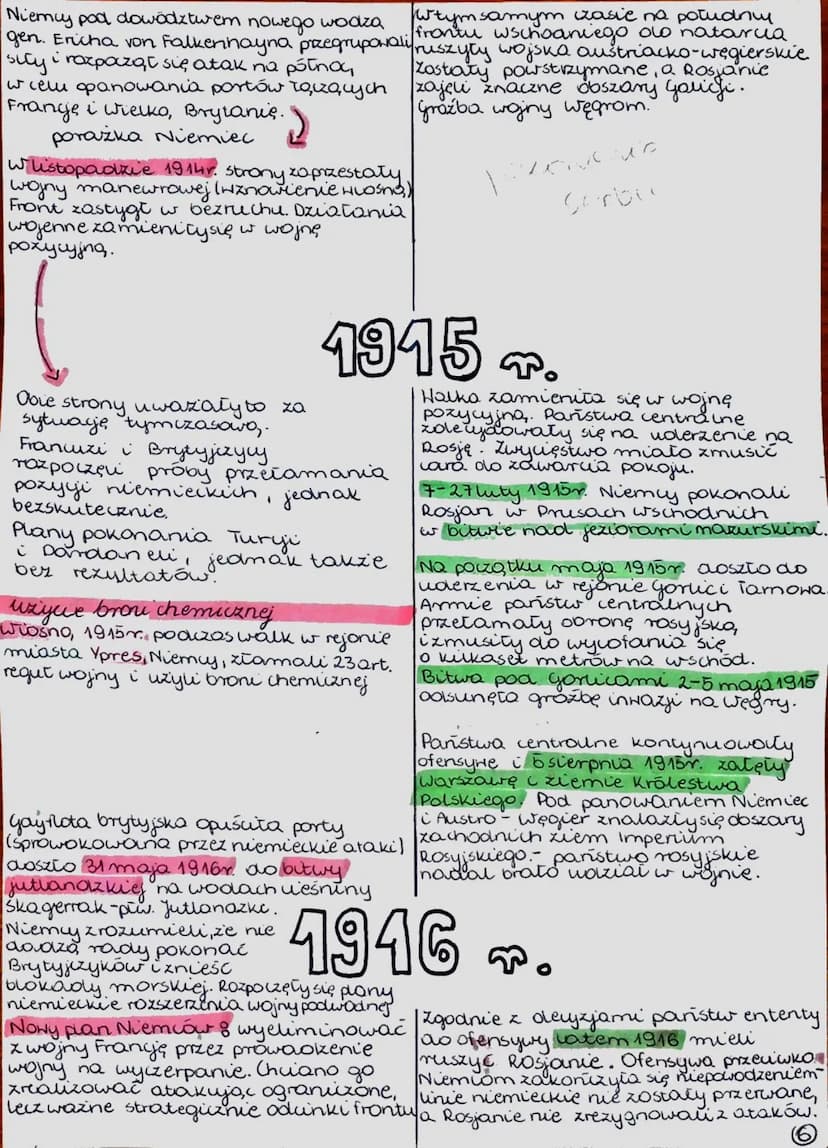 Niemcy pod dowództwem nowego wodza
gen. Ericha von Falkenhayna przegrupowali
siły i rozpoczął się atak na północ,
w celu opanowania portów łączących
Francję i Wielką Brytanię.
porażka Niemiec
W listopadzie 1914r. strony zaprzestały
wojny manewrowej (wznowienie wiosną)
Front zastygł w bezruchu. Działania
wojenne zamieniły się w wojnę
pozycyjną.
W tym samym czasie na południu
frontu wschodniego do natarcia
ruszyły wojska austriacko-węgierskie
Zostały powstrzymane, a Rosjanie
zajęli znaczne obszary Galicji.
Groźba wojny Węgrom.
1915 r.
Obie strony uważały to za
sytuację tymczasową.
Francuzi i Brytyjczycy
rozpoczęli próby przełamania
pozycji niemieckich, jednak
bezskutecznie.
Plany pokonania Turcji
i Dardaneli, jednak także
bez rezultatów.
użycie broni chemicznej
Wiosną 1915r. podczas walk w rejonie
miasta Ypres, Niemcy, złamali 23 art.
reguł wojny i użyli broni chemicznej
Walka zamieniła się w wojnę
pozycyjną. Państwa centralne
zdecydowały się na uderzenie na
Rosję. Zwycięstwo miało zmusić
cara do zawarcia pokoju.
7-27 luty 1915r. Niemcy pokonali
Rosjan w Prusach wschodnich
w bitwie nad jeziorami mazurskimi.
Na początku maja 1915r. doszło do
uderzenia w rejonie Gorlic i Tarnowa.
Armie państw centralnych
przełamały obronę rosyjską
i zmusiły do wycofania się
o kilkaset metrów na wschód.
Bitwa pod Gorlicami 2-5 maja 1915
odsunęła groźbę inwazji na Węgry.
Państwa centralne kontynuowały
ofensywę i 5 sierpnia 1915r. zajęły
Warszawę i ziemie Królestwa
Polskiego. Pod panowaniem Niemiec
i Austro - Węgier znalazły się obszary
zachodnich ziem Imperium
Rosyjskiego. - państwo rosyjskie
nadal brało udział w wojnie.
Gdy flota brytyjska opuściła porty
(sprowokowana przez niemieckie ataki)
doszło 31 maja 1916r. do bitwy
jutlandzkiej na wodach cieśniny
Skagerrak - płw. Jutlandzki.
Niemcy zrozumieli, że nie
dadzą rady pokonać
Brytyjczyków i znieść
blokady morskiej. Rozpoczęły się plany
niemieckie rozszerzenia wojny podwodnej
1916 r.
Nowy plan Niemców: wyeliminować
z wojny Francję przez prowadzenie
wojny na wyczerpanie. Chciano go
zrealizować atakując ograniczone,
lecz ważne strategicznie odcinki frontu
Zgodnie z decyzjami państw ententy
do ofensywy latem 1916 mieli
ruszyć Rosjanie. Ofensywa przeciwko
Niemcom zakończyła się niepowodzeniem-
linie niemieckie nie zostały przerwane,
a Rosjanie nie zrezygnowali z ataków.
6